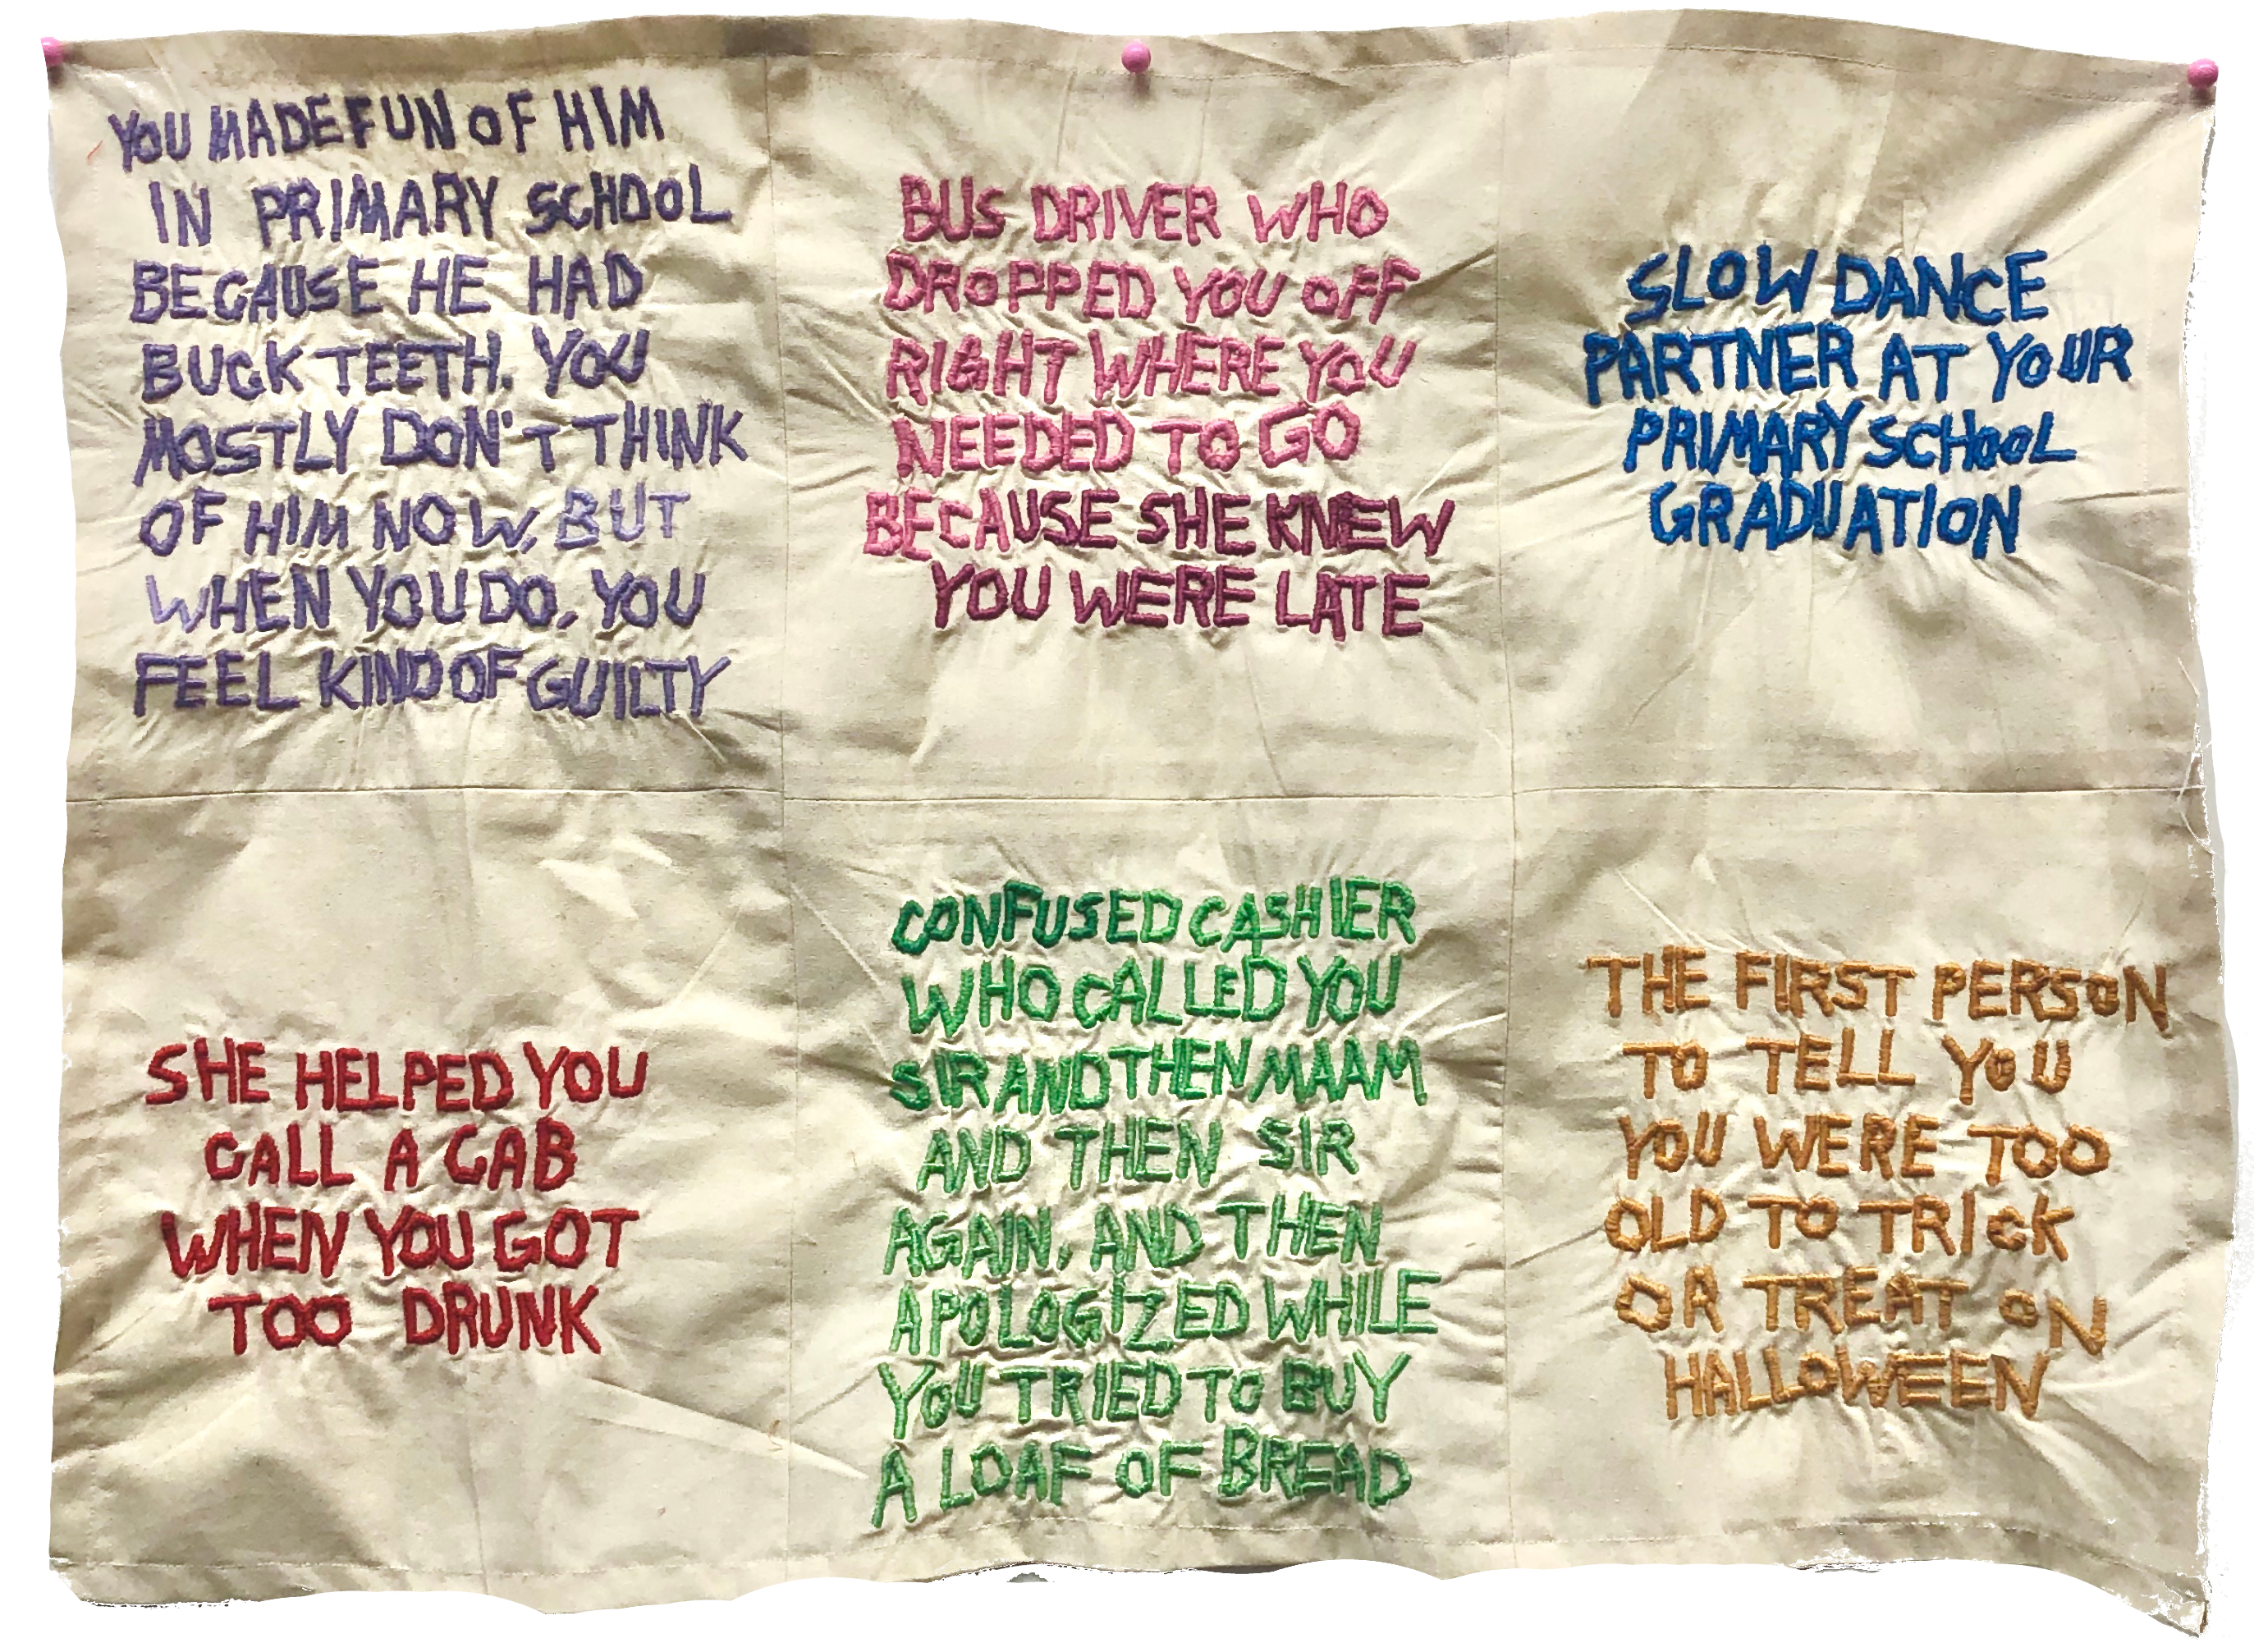 YOU MADE FUN OF HIM
IN PRIMARY SCHOOL
BECAUSE HE HAD
BUCK TEETH. YOU
MOSTLY DON'T THINK
OF HIM NOW, BUT
WHEN YOU DO, YOU
FEEL KIND OF GUILTY
BUS DRIVER WHO
DROPPED YOU OFF
RIGHT WHERE YOU
NEEDED TO GO
BECAUSE SHE KNEW
YOU WERE LATE
SLOW DANCE
PARTNER AT YOUR
PRIMARY SCHOOL
GRADUATION
SHE HELPED YOU
CALL A CAB
WHEN YOU GOT
TOO DRUNK
CONFUSED CASHIER
WHO CALLED YOU
SIR AND THEN MAAM
AND THEN SIR
AGAIN, AND THEN
APOLOGIZED WHILE
YOU TRIED TO BUY
A LOAF OF BREAD
THE FIRST PERSON
TO TELL YOU
YOU WERE TOO
OLD TO TRICK
OR TREAT ON
HALLOWEEN